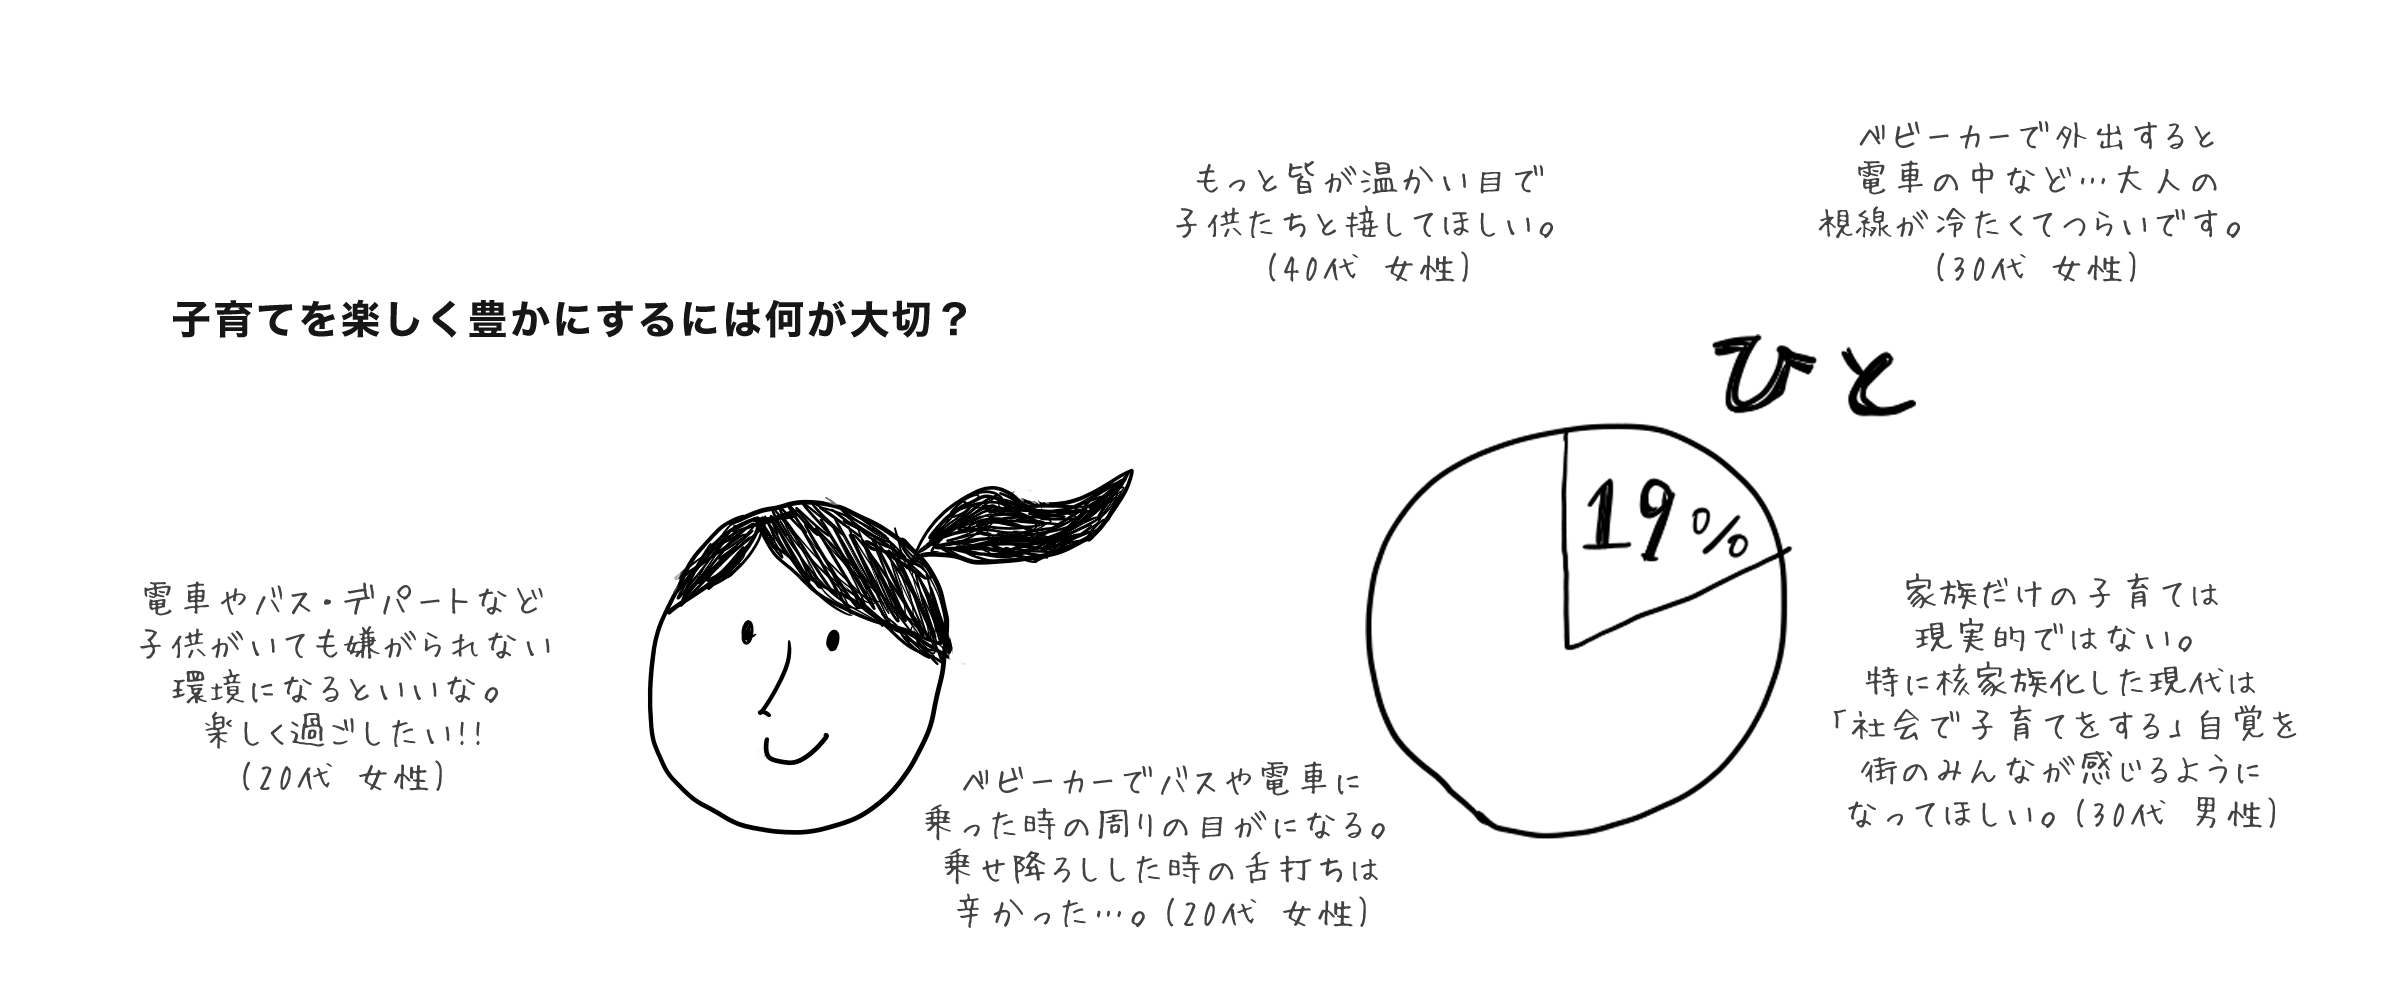 子育てを楽しく豊かにするには何が大切？
もっと皆が温かい目で
子供たちと接してほしい。
(40代 女性)
ベビーカーで外出すると
電車の中など…大人の
視線が冷たくてつらいです。
(30代 女性)
ひと
19%
電車やバス・デパートなど
子供がいても嫌がられない
環境になるといいな。
楽しく過ごしたい!!
(20代 女性)
ベビーカーでバスや電車に
乗った時の周りの目がになる。
乗せ降ろしした時の舌打ちは
辛かった…。(20代 女性)
家族だけの子育ては
現実的ではない。
特に核家族化した現代は
「社会で子育てをする」自覚を
街のみんなが感じるように
なってほしい。(30代 男性)